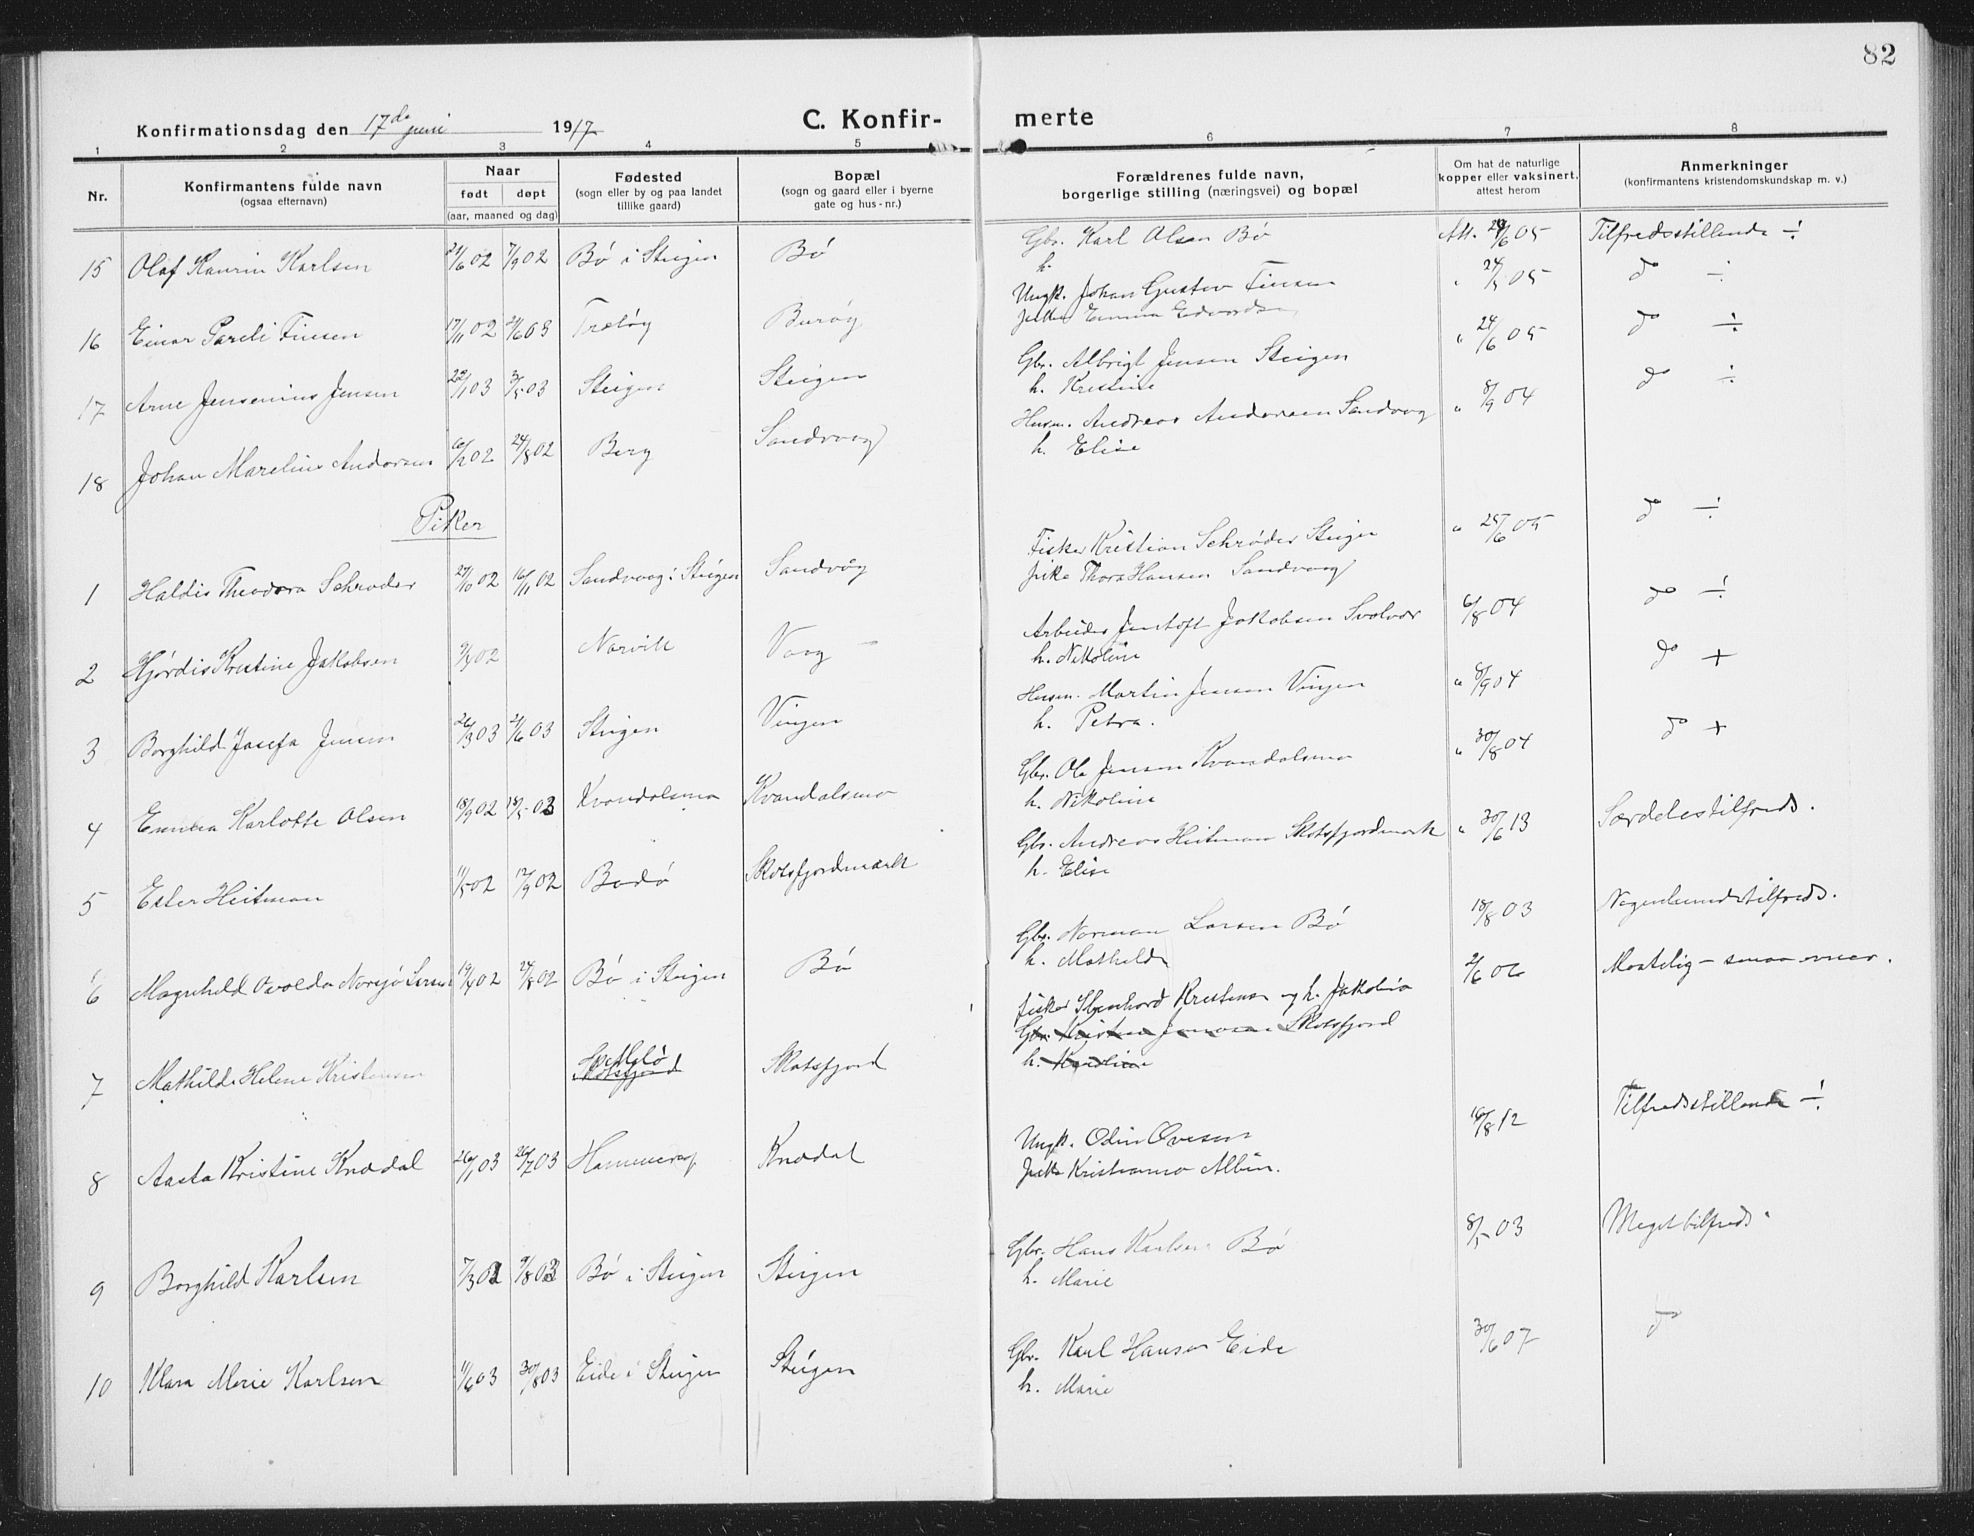 82
Konfirmationsdag den 17de juni 1917
C. Konfir-
merte
1 2 3 4 5 6 7 8
Nr.
Konfirmantens fulde navn
(ogsaa efternavn)
Naar
født døpt
(aar, maaned og dag)
Fødested
(sogn eller by og paa landet
tillike gaard)
Bopæl
(sogn og gaard eller i byerne
gate og hus-nr.)
Forældrenes fulde navn,
borgerlige stilling (næringsvei) og bopæl
Om hat de naturlige
kopper eller vaksinert.
attest herom
Anmerkninger
(konfirmantens kristendomskundskap m. v.)
15 Olaf Kaurin Karlsen 21/6 02 7/9 02 Bø i Steigen Bø Gbr. Karl Olsen Bø Att. 6 05 Tilfredsstillende ÷
h.
16 Einar Pareli Finsen 17/11 02 21/6 03 Burøy Ungk. Johan Gustav Finsen 24/5 05 do ÷
pike Emma Edvardsen
17 Arne Jensenius Jensen 22/1 03 3/5 03 Steigen Steigen Gbr. Albrigt Jensen Steigen " 24/6 05 do ÷
h. Kristine
18 Johan Marelius Andersen 6/2 02 24/8 02 Berg Sandvaag Husm. Andreas Andersen Sandvaag " 8/9 04 do ÷
h. Elise
Piker
1 Haldis Theodora Schrøder 27/10 02 16/11 02 Sandvaag i Steigen Sandvåg Fisker Kristian Schrøder Steigen " 25/6 05 do ÷
pike Thora Hansen Sandvaag
2 Hjørdis Kristine Jakobsen 9/4 02 Narvik Vaag Arbeider Jentoft Jakobsen Svolvær 6/8 04 do ÷
h. Nikoline
3 Borghild Josefa Jensen 26/3 03 21/6 03 Steigen Vingen Husm. Martin Jensen Vingen " 8/9 04 do +
h. Petra.
4 Emma Karlotte Olsen 18/9 02 18/5 03 Kvandalsmo Kvandalsmo Gbr. Ole Jensen Kvandalsmo " 30/8 04 do +
h. Nikoline
5 Ester Heitman 11/5 02 17/9 02 Bodø Skotsfjordmark Gbr. Andreas Heitman Skotsfjordmark " 30/6 13 Særdeles tilfreds.
h. Elise
6 Magnhild Osvolda Norsjø Larsen 19/4 02 24/8 02 Bø i Steigen Bø Gbr. Norman Larsen Bø 18/8 03 Nogenlunde tilfreds.
h. Mathilde
7 Mathilde Helene Kristensen Skotsfjord Skotsfjord fisker Kristensen og h. Jakobia 21/6 06 Maatelig - smaa evner.
Skotsfjord
h. Karoline
8 Aasta Kristine Knædal 26/1 03 26/7 03 Hammerøy Knædal Ungk. Odin Ovesen 16/8 12 Tilfredsstillende ÷
Pike Kristianna Albin.
9 Borghild Karlsen 7/3 02 9/8 03 Bø i Steigen Steigen Gbr. Hans Karlsen Bø 8/5 03 Meget tilfreds.
h. Marie
10 Klara Marie Karlsen 11/6 03 30/8 03 Eide i Steigen Steigen Gbr. Karl Hansen Eide 30/6 07 do
h. Marie